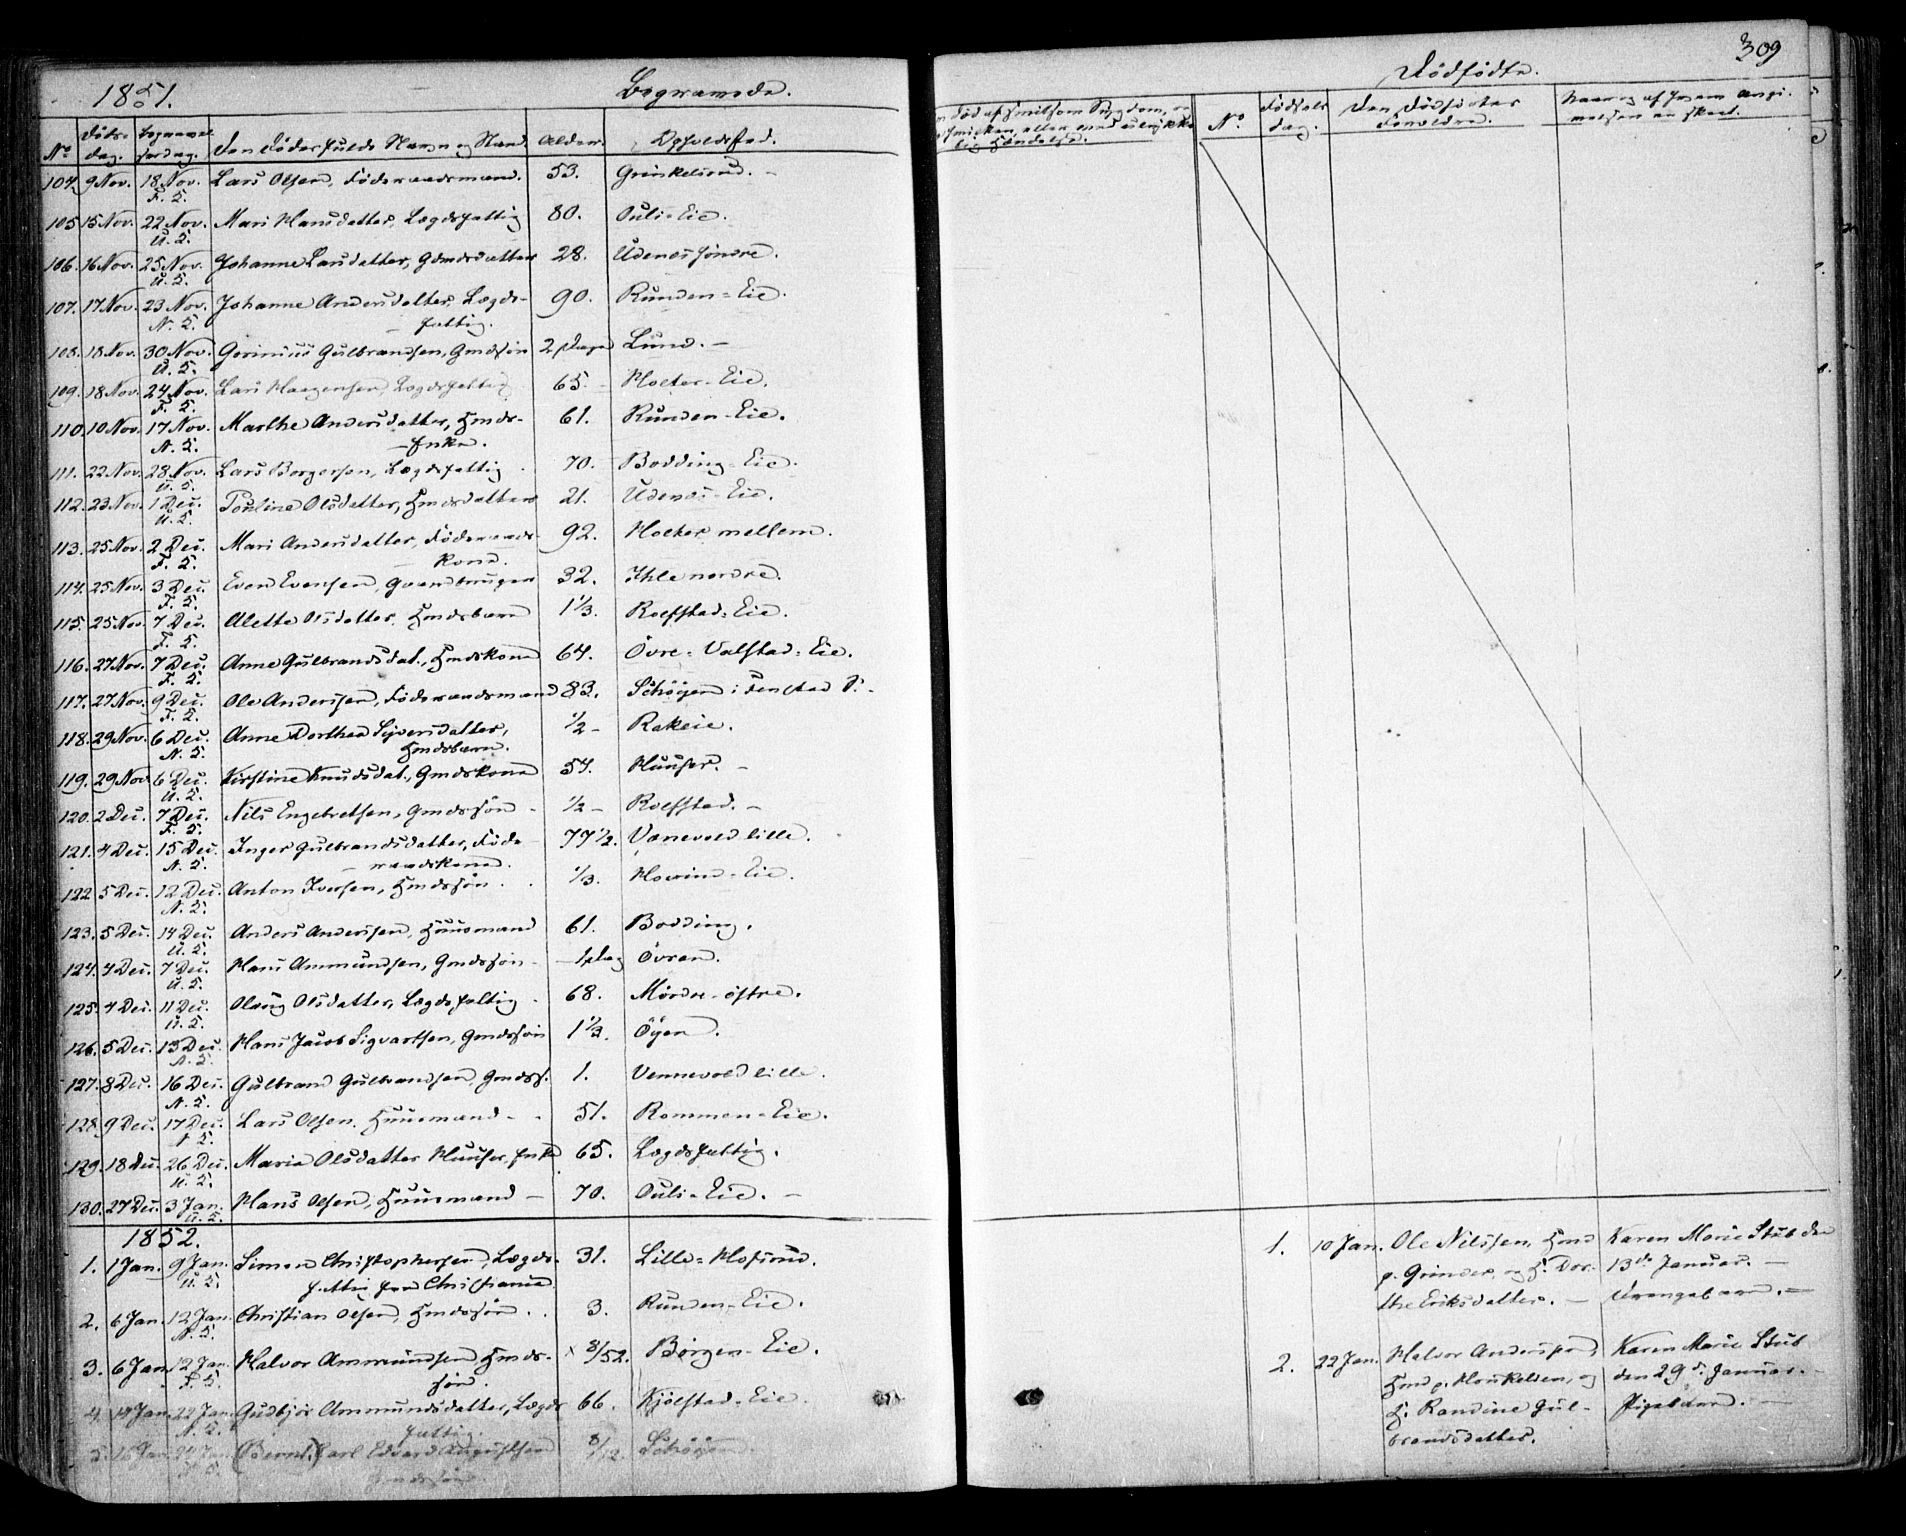 1851. Begravede.
No Døds dag. Begravel. ses dag. Den Dødes fulde Navn og Stand. Alder. Opholdssted.
104. 9 Nov. 18 Nov. Lars Olsen, Føderaadsmand. 53. Grinkelsrud. -
F. S.
105 15 Nov. 22 Nov. Mari Hansdatter, Lægdsfattig 80. Ouli-Eie.
U. S.
106. 16 Nov. 25 Nov. Johanne Larsdatter, Gmdsdatter 28. Udenes søndre.
U. S.
107. 17 Nov. 23 Nov. Johanne Andersdatter, Lægds- 90. Runden-Eie.
N. S. - fattig.
108. 18 Nov. 30 Nov. Gulbrandsen, Gmdssøn 2 Dage Lund. -
U. S.
109. 18 Nov. 24 Nov. Lars Haagensen, Lægdsfattig 65. Holter-Eie.
F. S.
110. 10 Nov. 17 Nov. Marthe Andersdatter, Hmds- 61. Runden-Eie.
N. S. - Enke.
111. 22 Nov. 28 Nov. Lars Borgersen, Lægdsfattig. 70. Bodding-Eie.
U. S.
112. 23 Nov. 1 Dec. Pauline Olsdatter, Hmdsdatter 21. Udenes-Eie.
U. S.
113. 25 Nov. 2 Dec. Mari Andersdatter, Føderaads- 92. Holter mellem.
F. S. - kone.
114. 25 Nov. 3 Dec. Even Evensen, Gaardbruger 32. Ihle nordre.
F. S.
115. 25 Nov. 7 Dec. Alette Olsdatter, Hmdsbarn 1 1/3. Rolfstad-Eie.
F. S.
116. 27 Nov. 7 Dec. Anne Gulbrandsdat., Hmdskone 64. Övre-Valstad-Eie.
F. S.
117. 27 Nov. 9 Dec. Ole Andersen, Føderaadsmand 83. Schøyen i Fenstad S. -
F. S.
118. 29 Nov. 6 Dec. Anne Dorthea Syversdatter, 1/2 - Rakeie.
N. S. Hmdsbarn.
119. 29 Nov. 6 Dec. Kirstine Knudsdat., Gmdskone 54. Huuser. -
U. S.
120. 2 Dec. 7 Dec. Nils Engebretsen, Gmdssøn - 1/2 - Rolfstad. -
F. S.
121. 4 Dec. 15 Dec. Inger Gulbrandsdatter, Føde- 77 1/2. Vanevold lille.
N. S. - raadskone.
122 5 Dec. 12 Dec. Anton Iversen, Hmdssøn. 1/3. Hovind-Eie.
N. S.
123. 5 Dec. 14 Dec. Anders Andersen, Huusmand 61. Bodding.
U. S.
124. 4 Dec. 7 Dec. Hans Ammundsen, Gmdssøn - 1 Dag Övren.
U. S.
125. 4 Dec. 11 Dec. Olaug Olsdatter, Lægdsfattig. 68. Mördre-östre.
U. S.
126. 5 Dec. 13 Dec. Hans Jacob Sigvartsen, Gmdssøn 1 1/3. Öyen.
N. S.
127. 8 Dec. 16 Dec. Gulbrand Gulbrandsen, Gmdss. 1. Vennevold lille.
N. S.
128. 9 Dec. 17 Dec. Lars Olsen. Huusmand - - 51. Rommen-Eie.
N. S.
129. 18 Dec. 26 Dec. Maria Olsdatter Huuser, Enke 65. Lægdsfattig.
U. S.
130. 27 Dec. 3 Jan. Hans Olsen, Huusmand - 70. Ouli-Eie. -
U. S.
1852.
1. 1 Jan. 9 Jan. Simen Christophersen, Lægds- 31. Lille-Hofsrud.
U. S. fattig fra Christiania
2. 6 Jan. 12 Jan. Christian Olsen, Hmdssøn. 3. Runden-Eie.
N. S.
3. 6 Jan. 12 Jan. Halvor Ammundsen Hmds- x 8/52. Börgen-Eie.
F. S. søn.
4. 14 Jan. 22 Jan. Gudbjør Ammundsdatter, Lægds 66. Kjölstad-Eie.
N. S. fattig.
5. 16 Jan 24 Jan (Bernt) Carl Edvard Augustsen 8/12. Schøyen
Hmdssøn.
309
Dødfødte.
Død af smitsom Sygdom, om
eller ved ulykke-
lig Hændelse.
No. Fødsels dag. Den Dødfødtes Forældre. Naar og af hvem Anmeldelsen er skeet.
1. 10 Jan. Ole Nilssen, Hmd Karen Marie Stub den
p. Grinder, og H. Dor- 13de Januar. -
the Eriksdatter. - Drengebarn. -
2. 22 Jan. Halvor Andersen, Karen Marie Stub
Hmd p. Hounkelsen, og den 29d. Januar. -
H. Randine Gul- Pigebarn. -
brandsdatter.